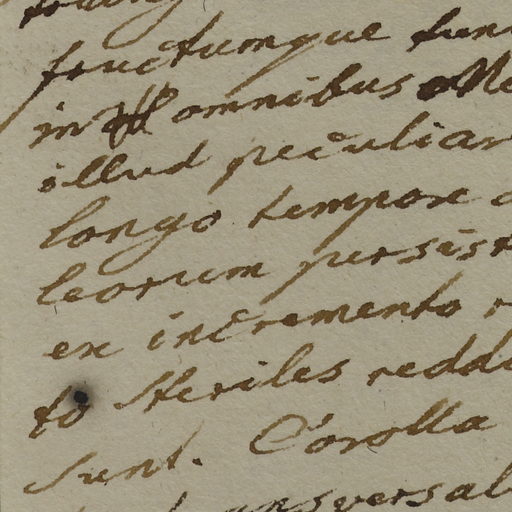 fructumque tun
in omnibus
illud peculiar
longo tempore
leorum persist
ex incremento
to steriles redd
sunt. Corolla
ansversal